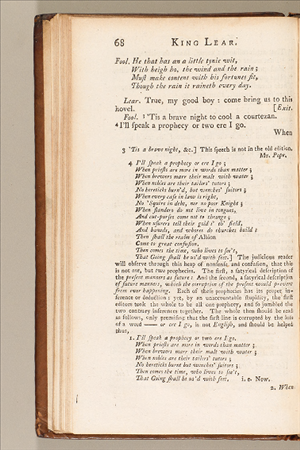 68 KING LEAR.
Fool. He that has an a little tynie wit,
With heigh ho, the wind and the rain;
Must make content with his fortunes fit,
Though the rain it raineth every day.
Lear. True, my good boy: come bring us to this
hovel. [Exit.
Fool. 3 'Tis a brave night to cool a courtezan.
4 I'll speak a prophecy or two ere I go.
When
3 'Tis a brave night, &c.] This speech is not in the old edition.
Mr. Pope.
4 I'll speak a prophecy or ere I go;
When priests are more in words than matter;
When brewers marr their malt with water;
When nobles are their tailors' tutors;
No hereticks burn'd, but wenches' suitors;
When every case in law is right,
No 'squire in debt, nor no poor Knight;
When slanders do not live in tongues,
And cut-purses come not to throngs;
When usurers tell their gold i' th' field,
And bawds, and whores do churches build:
Then shall the realm of Albion
Come to great confusion.
Then comes the time, who lives to see't,
That Going shall be us'd with feet.] The judicious reader
will observe through this heap of nonsense and confusion, that this
is not one, but two prophecies. The first, a satyrical description of
the present manners as future: And the second, a satyrical description
of future manners, which the corruption of the present would prevent
from ever happening. Each of these prophecies has its proper in-
ference or deduction: yet, by an unaccountable stupidity, the first
editors took the whole to be all one prophecy, and so jumbled the
two contrary inferences together. The whole then should be read
as follows, only premising that the first line is corrupted by the loss
of a word —— or ere I go, is not English, and should be helped
thus,
1. I'll speak a prophecy or two ere I go.
When priests are more in words than matter;
When brewers marr their malt with water;
When nobles are their tailors' tutors;
No hereticks burnt but wenches' suitors;
Then comes the time, who lives to see't,
That Going shall be us'd with feet. i. e. Now.
2. When